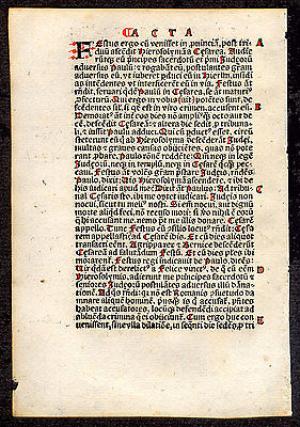 ACTA
FEstus ergo cū venisset in ꝓuinciā, post tri A
duū ascēdit Hierosolymā a Cesarea. Audie
rūtq̄ eū pncipes sacerdotū et pmi Judeorū
aduersus Paulū & rogabāt eū, postulantes grām
aduersus eū, vt iuberet pduci eū in Hierlm,
as tēdentes vt interficerēt eū in via. Festus aūt
rñdit, seruari Paulū in Cesarea, se aūt maturi
ꝓfecturū. Qui ergo in vobis ait potētes sunt, de
scēdētes sīl, si qd est in viro crimen, accusent eū. B
Demorat aūt inter eos dies nō ampli octo aut de
cē, descēdit Cesareā & altera die sedit ꝓ tribuna
li, & iussit Paulū adduci. Qui cū pduct esset, circū
steterunt eū q ab Hierosolyma descēderāt Judei,
multas & graues causas obijciētes, quas nō pot
erant ꝓbare. Paulo rōnē reddēte: Qm neq in legē
Judeorū, neq in templū, neq in Cesarē qcq pec
caui. Festus aūt volēs grām pstare Judeis, rñdēs C
Paulo, dixit: Vis Hierosolymā ascēdere, & ibi de
his iudicari apud me? Dixit aūt Paulus: Ad tribu
nal Cesaris sto, ibi me oportet iudicari. Judeis non
nocui, sicut tu meli nosti. Si em nocui, aut dignū
morte aliqd feci, nō recuso mori: si vo nihil ē eorū
q hi accusant me, nemo pt me illis donare. Cesarē
appello. Tunc Festus cū cōsilio locut rñdit: Cesa
rem appellasti, ad Cesarē ibis. Et cū dies aliquot
transacti eēnt, Agrippa rex & Bernice descēderūt
Cesareā ad salutādum Festū. Et cū dies plures ibi
morarent, Festus regi indicauit de Paulo, dicēs:
Vir qdā est derelict a Felice vinct, de q cū eēm D
Hierosolymis, adierunt me principes sacerdotū &
seniores Judeorū, postulātes aduersus illū dam
nationē. Ad qs rñdi: qa nō est Romanis psuetudo da
mnare aliquē hominē, priusq is q accusat, pñtes
habeat accusatores, locūq defendēdi accipiat ad
abluēda crimina q ei obijciunt. Cum ergo huc con E
uenissent, sine vlla dilatiōe, in seqnti die sedēs, ꝓ tri